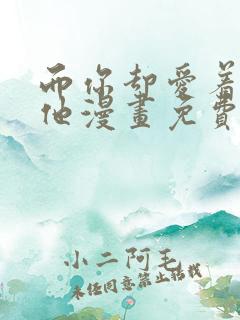 而你却愛着
他漫畫免費
小二阿毛
未经同意禁止转载